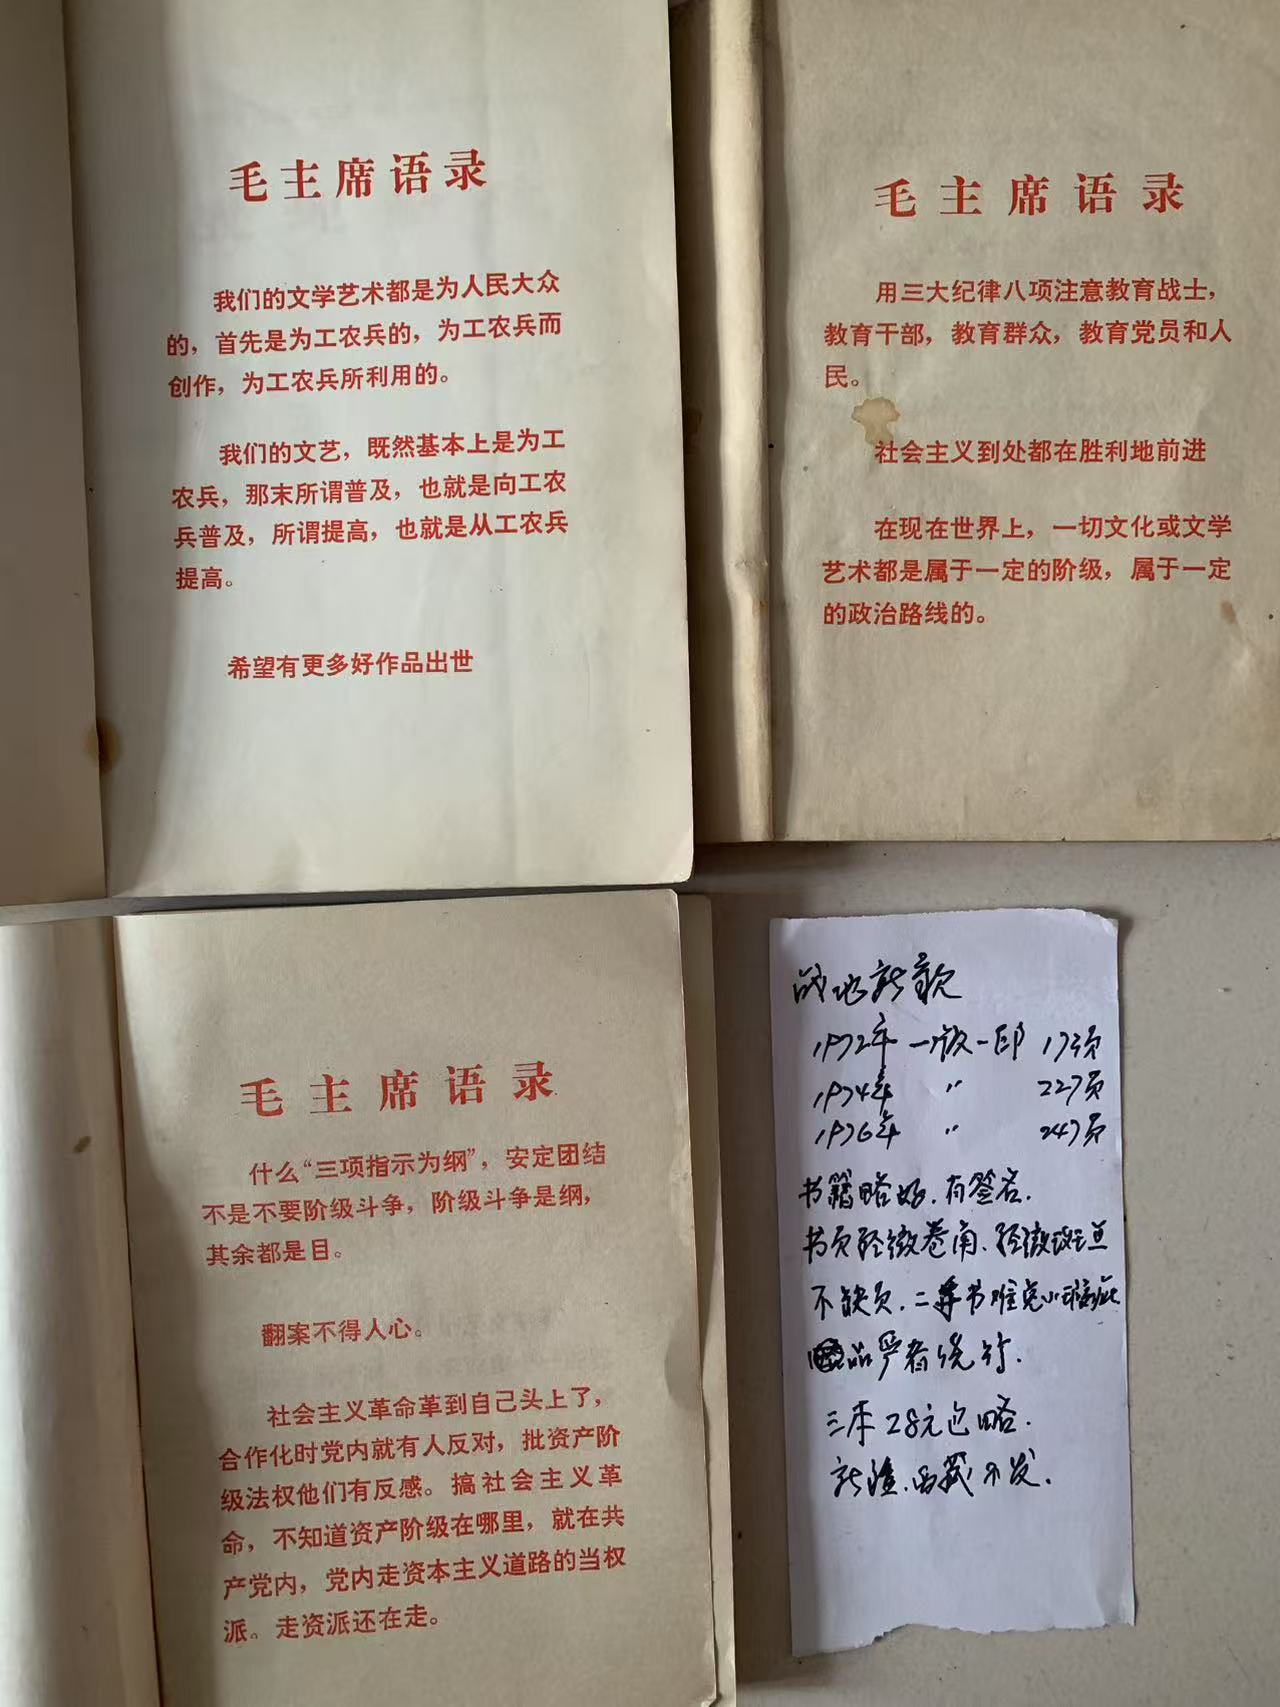 毛主席语录
我们的文学艺术都是为人民大众
的，首先是为工农兵的，为工农兵而
创作，为工农兵所利用的。
我们的文艺，既然基本上是为工
农兵，那末所谓普及，也就是向工农
兵普及，所谓提高，也就是从工农兵
提高。
希望有更多好作品出世
毛主席语录
用三大纪律八项注意教育战士，
教育干部，教育群众，教育党员和人
民。
社会主义到处都在胜利地前进
在现在世界上，一切文化或文学
艺术都是属于一定的阶级，属于一定
的政治路线的。
毛主席语录
什么“三项指示为纲”，安定团结
不是不要阶级斗争，阶级斗争是纲，
其余都是目。
翻案不得人心。
社会主义革命革到自己头上了，
合作化时党内就有人反对，批资产阶
级法权他们有反感。搞社会主义革
命，不知道资产阶级在哪里，就在共
产党内，党内走资本主义道路的当权
派。走资派还在走。
战地新歌
1972年 一版一印 173页
1974年 〃 227页
1976年 〃 247页
书籍略好.有签名.
书页轻微卷角.轻微斑
不缺页.二手书难免小瑕疵
品严者绕行.
三本28元包略.
新疆.西藏不发.